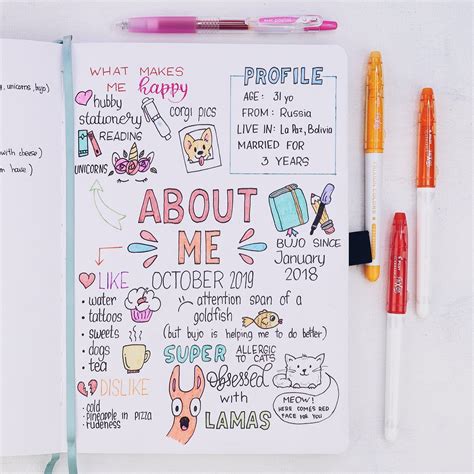 , unicorns, bujo)
with cheese)
m house)
WHAT MAKES
ME happy
hubby
stationery
READING
UNICORNS
corgi pics
PROFILE
AGE: 31 yo
FROM: Russia
LIVE IN: La Paz, Bolivia
MARRIED FOR
3 YEARS
ABOUT
ME
BUJO SINCE
January
2018
OCTOBER 2019
LIKE
• water
• tattoos
• sweets
• dogs
• tea
attention span of a
goldfish
(but bujo is helping me to do better)
SUPER ALLERGIC
TO CATS
DISLIKE
• cold
• pineapple in pizza
• rudeness
Obsessed
with
LAMAS
MEOW!
HERE COMES RED
FACE FOR YOU